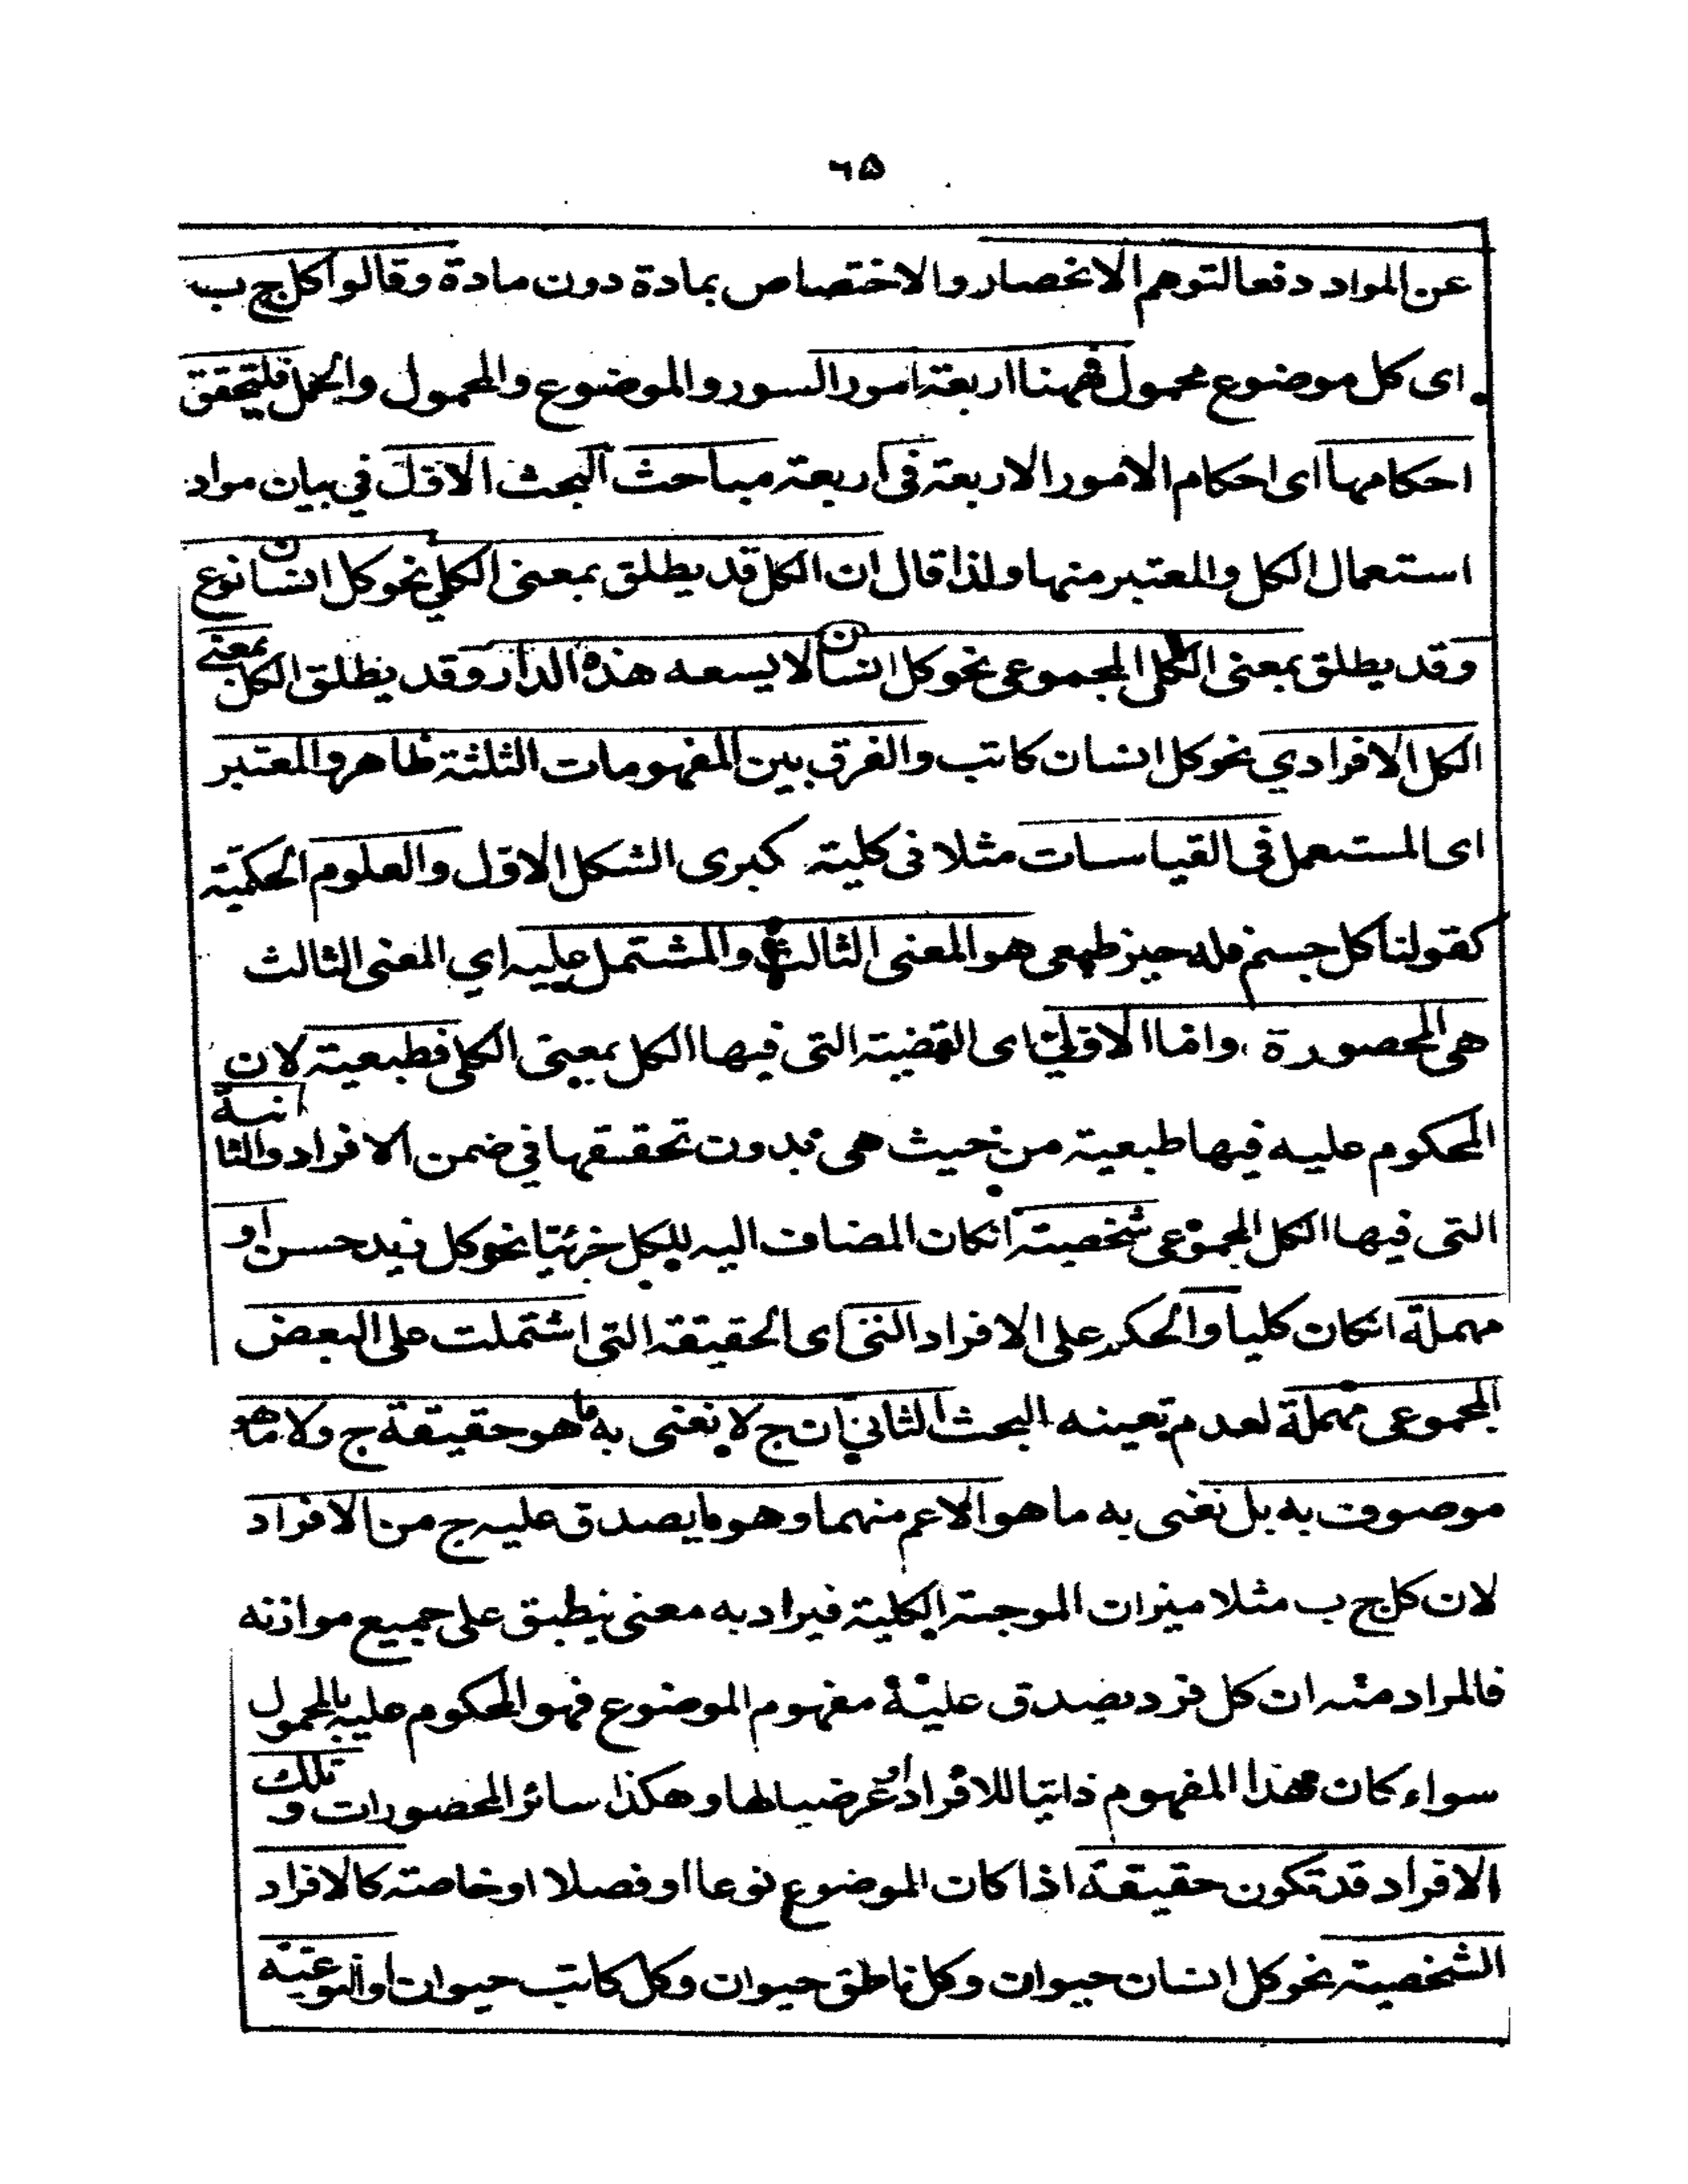 ٦٥
عن المواد دفعا لتوهم الانحصار والاختصاص بمادة دون مادة وقالوا كل ج ب
اى كل موضوع محمول فههنا اربعة امور السور والموضوع والمحمول والحمل فلتحقق
احكامها اى احكام الامور الاربعة فى اربعة مباحث البحث الاول في بيان مواد
استعمال الكل والمعتبر منها ولذا قال ان الكل قد يطلق بمعنى الكلي نحو كل انسان نوع
وقد يطلق بمعنى الكل المجموعى نحو كل انسان لا يسعه هذه الدار وقد يطلق الكل بمعنى
الكل الافرادي نحو كل انسان كاتب والفرق بين المفهومات الثلثة ظاهر والمعتبر
اى المستعمل فى القياسات مثلا فى كلية كبرى الشكل الاول والعلوم الحكمية
كقولنا كل جسم فله حيز طبعى هو المعنى الثالث والمشتمل عليه اي المعنى الثالث
هى المحصورة واما الاولى اى القضية التى فيها الكل بمعنى الكلى فطبعية لان
المحكوم عليه فيها طبعية من حيث هى بدون تحققها في ضمن الافراد والثانية
التى فيها الكل المجموعى شخصية انكان المضاف اليه للكل جزئيا نحو كل زيد حسن او
مهملة انكان كليا والحكم على الافراد التى اى الحقيقة التى اشتملت على البعض
المجموعى مهملة لعدم تعينه البحث الثاني ان ج لا نعنى به ما هو حقيقة ج ولا ما هو
موصوف به بل نعنى به ما هو الاعم منهما وهو ما يصدق عليه ج من الافراد
لان كل ج ب مثلا ميزان الموجبة الكلية فيراد به معنى ينطبق على جميع موازنه
فالمراد منه ان كل فرد يصدق عليه مفهوم الموضوع فهو المحكوم عليه بالمحمول
سواء كان هذا المفهوم ذاتيا للافراد او عرضيا لها وهكذا سائر المحصورات و تلك
الافراد قد تكون حقيقة اذا كان الموضوع نوعا او فصلا او خاصة كالافراد
الشخصية نحو كل انسان حيوان وكل ناطق حيوان وكل كاتب حيوان او النوعية